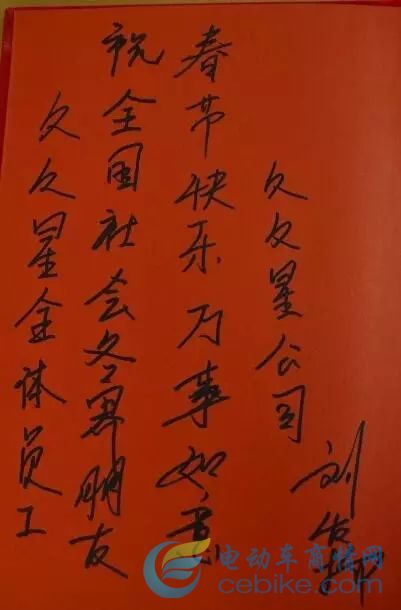 久久星全体员工
祝全国社会各界朋友
春节快乐万事如意
久久星公司
刘
电动车商情网
cebike.com